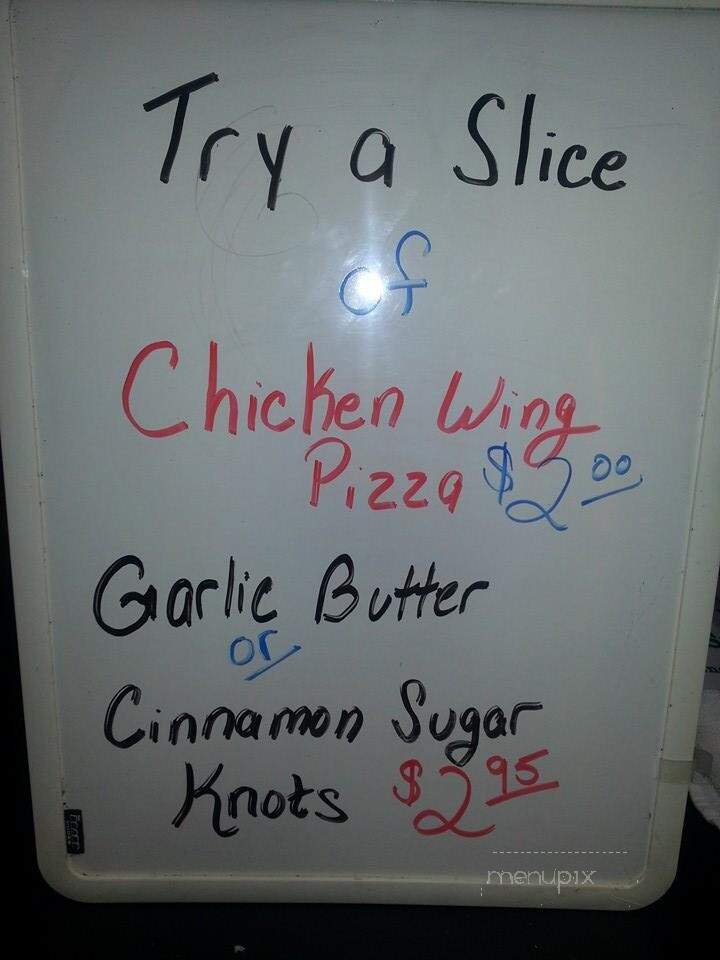 Try a Slice
of
Chicken Wing
Pizza $2.00
Garlic Butter
or
Cinnamon Sugar
Knots $2.95
menupix